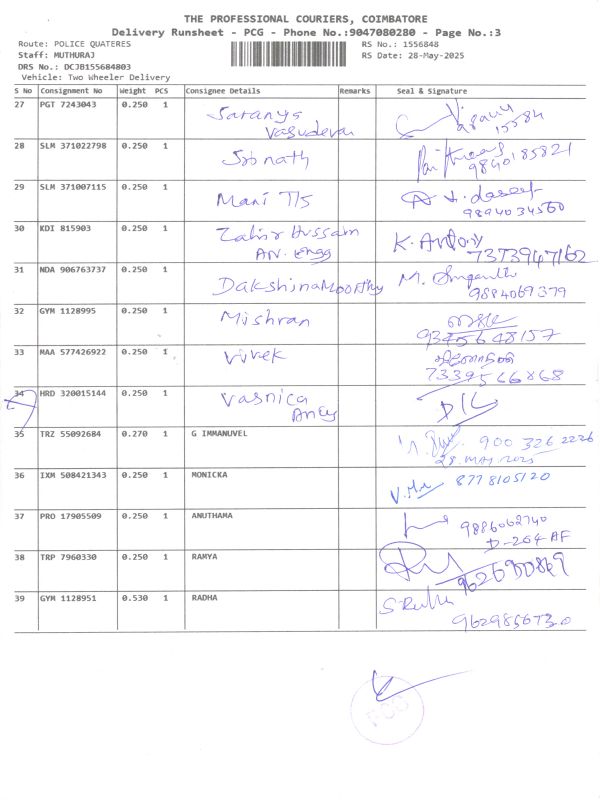 THE PROFESSIONAL COURIERS, COIMBATORE
Delivery Runsheet - PCG - Phone No.:9047080280 - Page No.:3
Route: POLICE QUATERES RS No.: 1556848
Staff: MUTHURAJ RS Date: 28-May-2025
DRS No.: DCJB155684803
Vehicle: Two Wheeler Delivery
S No Consignment No Weight PCS Consignee Details Remarks Seal & Signature
27 PGT 7243043 0.250 1 Saranya
Vasudevan 15584
28 SLM 371022798 0.250 1 Srinath
9840185821
29 SLM 371007115 0.250 1 Mani T/S
9894034560
30 KDI 815903 0.250 1 Zahir Hussain K. Antony
AN. Engg 7373947162
31 NDA 906763737 0.250 1 Dakshinamoorthy M.
9884069379
32 GYM 1128995 0.250 1 Mishran
9345648157
33 MAA 577426922 0.250 1 Vivek
7339566868
34 HRD 320015144 0.250 1 Vasnica D/L
35 TRZ 55092684 0.270 1 G IMMANUVEL 900 326 2226
28 MAY 2025
36 IXM 508421343 0.250 1 MONICKA 8778105120
37 PRO 17905509 0.250 1 ANUTHAMA 9886062740
D-264 AF
38 TRP 7960330 0.250 1 RAMYA
39 GYM 1128951 0.530 1 RADHA
9629856730
PCG